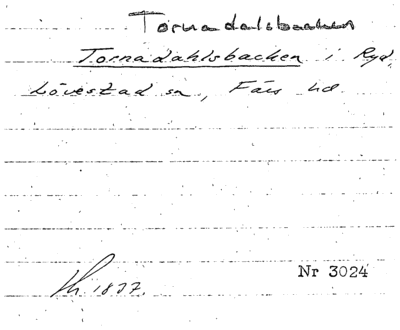 Tornadalsbacken
Tornadahlsbacken i Ryd,
Lövestad sn, Färs hd.
Nr 3024
1837.